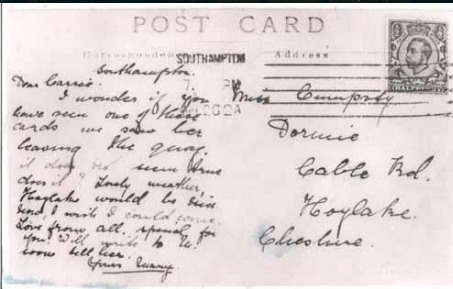 POST CARD
Correspondence
Address
SOUTHAMPTON
Southampton.
Dear Carrie.
I wonder if you
have seen one of these
cards we saw her
leaving the quay.
it does not seem true
does it " Lovely weather,
Hoylake would be nice
now I wish I could come.
Love from all. special for
you. Will write to
soon tell her.
Yours
Miss
Dormie
Cable Rd.
Hoylake.
Cheshire.